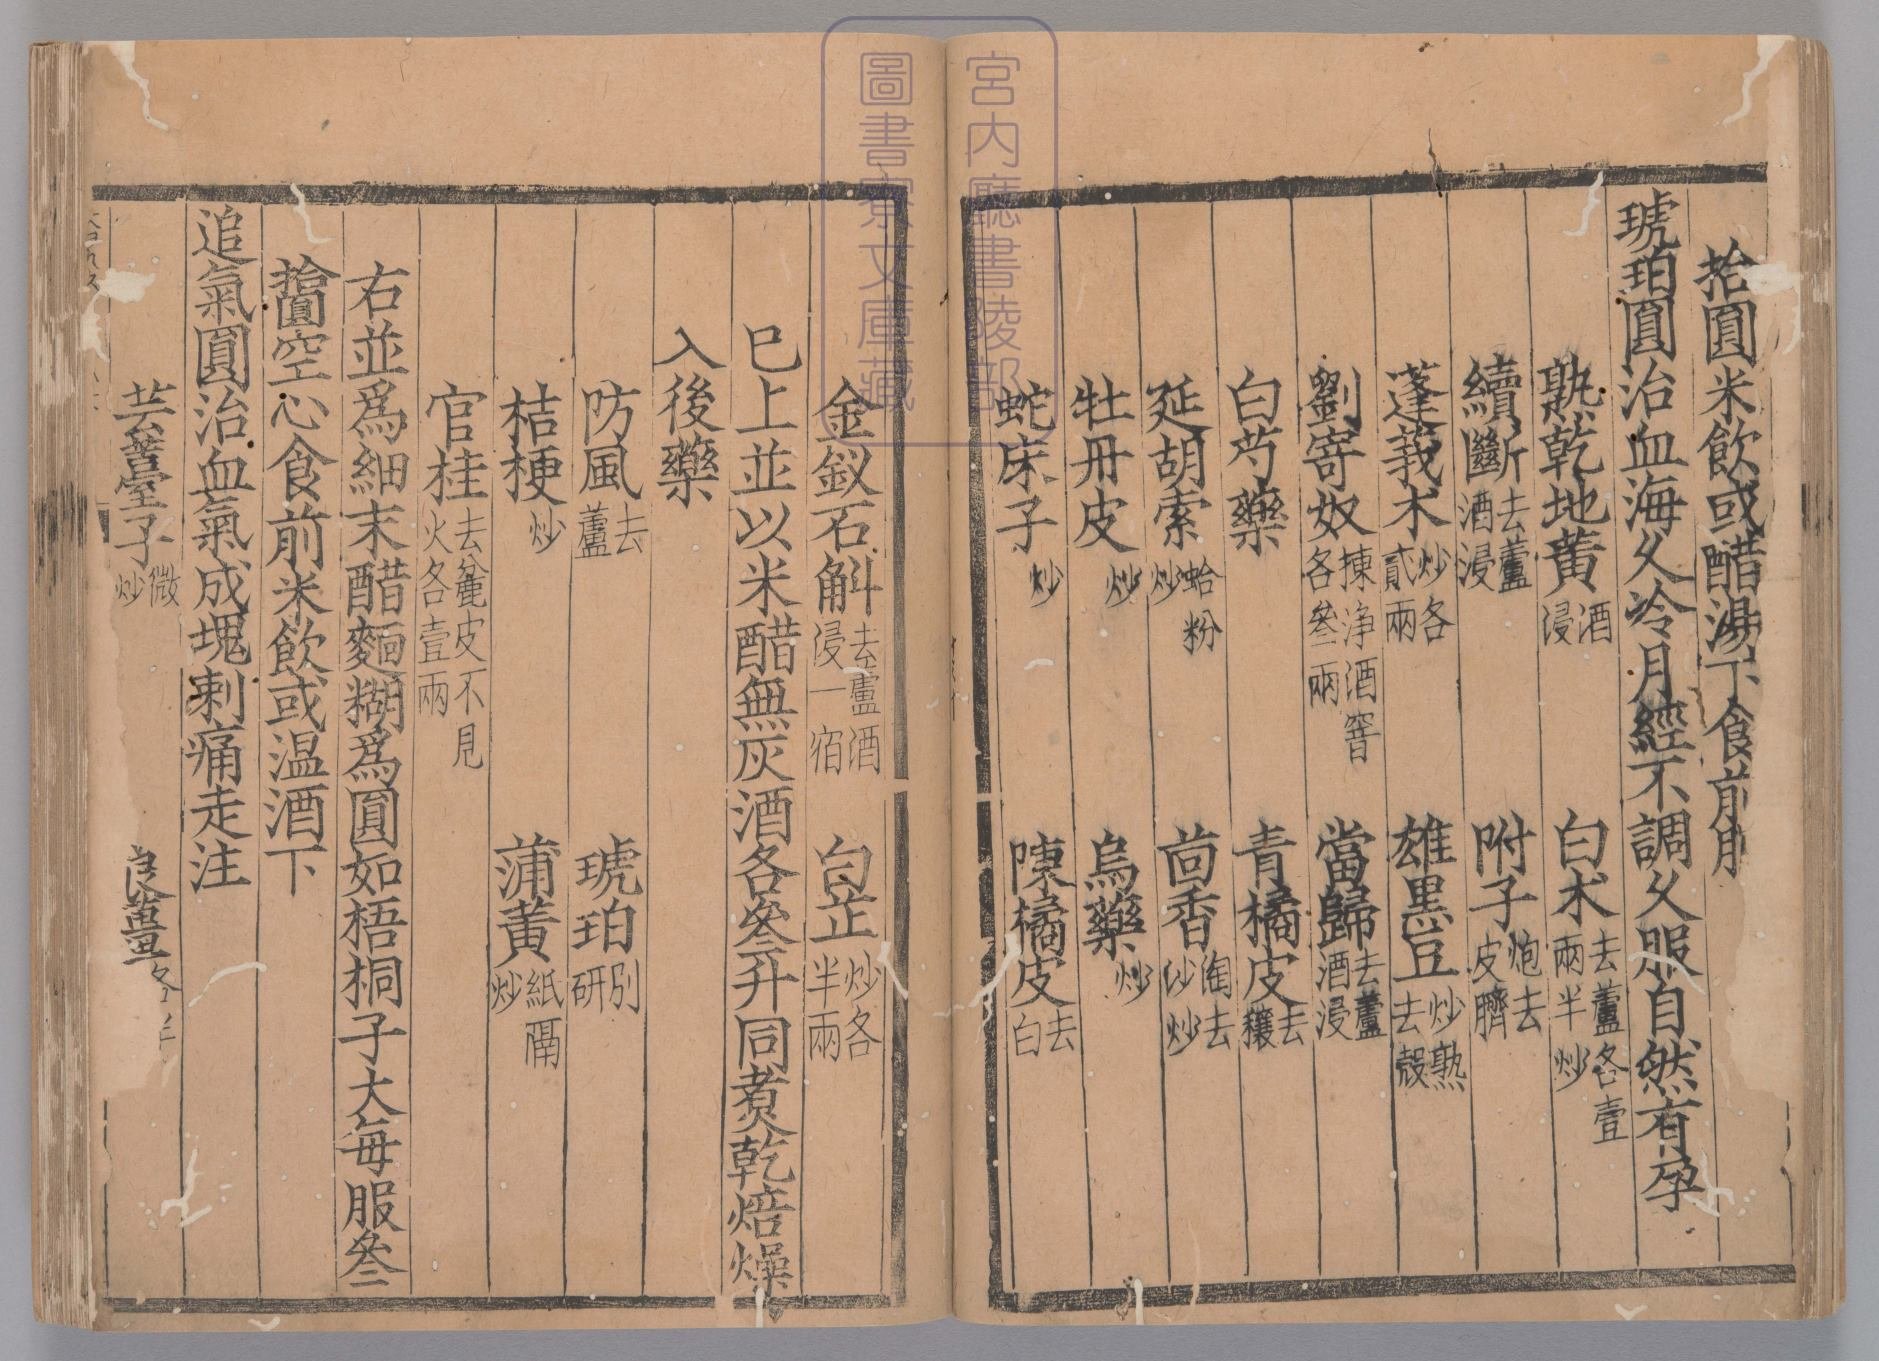 拾圓米飲或醋湯下食前服
琥珀圓治血海久冷月經不調久服自然有孕
熟乾地黄酒浸 白术去蘆各壹兩半炒
續斷去蘆酒浸 附子炮去皮臍
蓬莪术炒各貳兩 雄黒豆炒熟去殼
劉寄奴揀浄酒窨各叄兩 當歸去蘆酒浸
白芍藥 青橘皮去穰
延胡索蛤粉炒 茴香淘去沙炒
牡丹皮炒 烏藥炒
蛇床子炒 陳橘皮去白
金釵石斛去蘆酒浸一宿 白芷炒各半兩
巳上並以米醋無灰酒各叄升同煑乾焙燥
入後藥
防風去蘆 琥珀別研
桔梗炒 蒲黄紙隔炒
官桂去麄皮不見火各壹兩
右並爲細末醋麵糊爲圓如梧桐子大每服叄
拾圓空心食前米飲或温酒下
追氣圓治血氣成塊刺痛走注
芸薹子微炒 良薑各半
宮内廳書陵部
圖書寮文庫藏